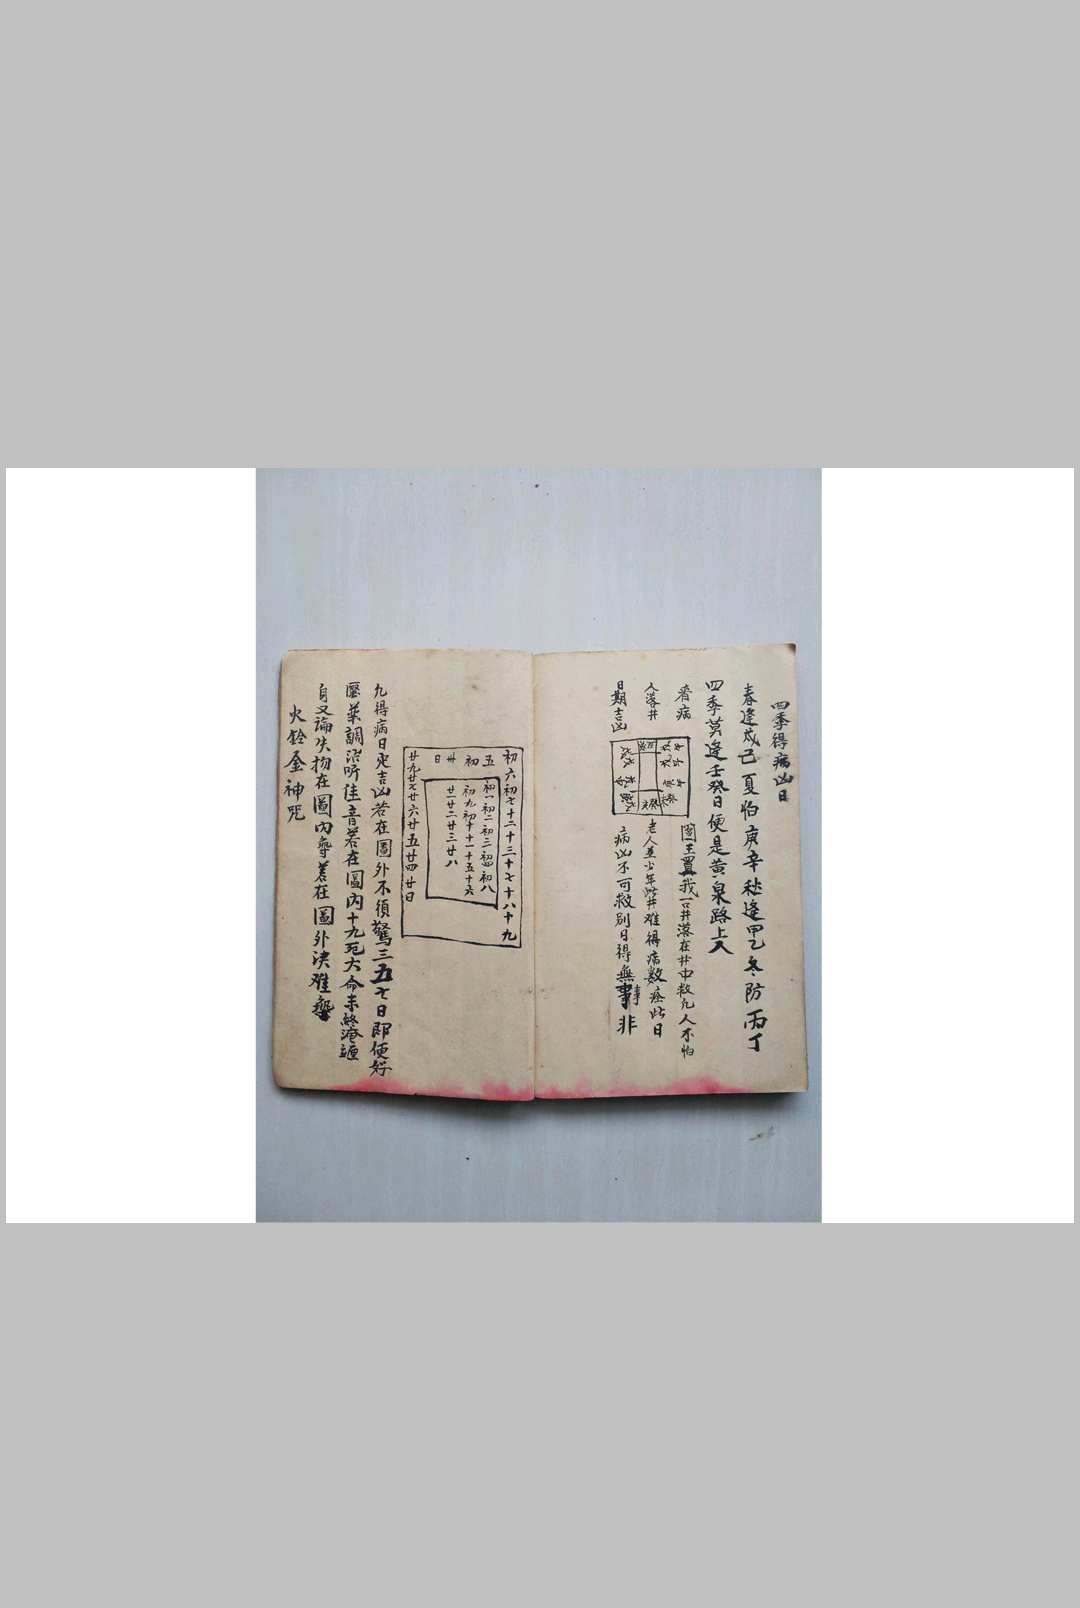 四季得病凶日
春逢戊己夏怕庚辛秋逢甲乙冬防丙丁
四季莫逢壬癸日便是黄泉路上人
看病
人落井
日期吉凶
國王置我一口井落在井中救凡人不怕
老人并少年此井难得病數痊此日
病凶不可救别日得無事非
初六初七十二十三十七十八十九
五初卅日
廿九廿七廿六廿五廿四廿日
初一初二初三初四初八
初九初十十一十五十六
廿一廿二廿三廿八
凡得病日定吉凶若在圖外不須驚三五七日即便好
醫藥調治听佳音若在圖内十九死大命未終淹纏
身又論失物在圖内尋若在圖外決难
火鈴金神咒